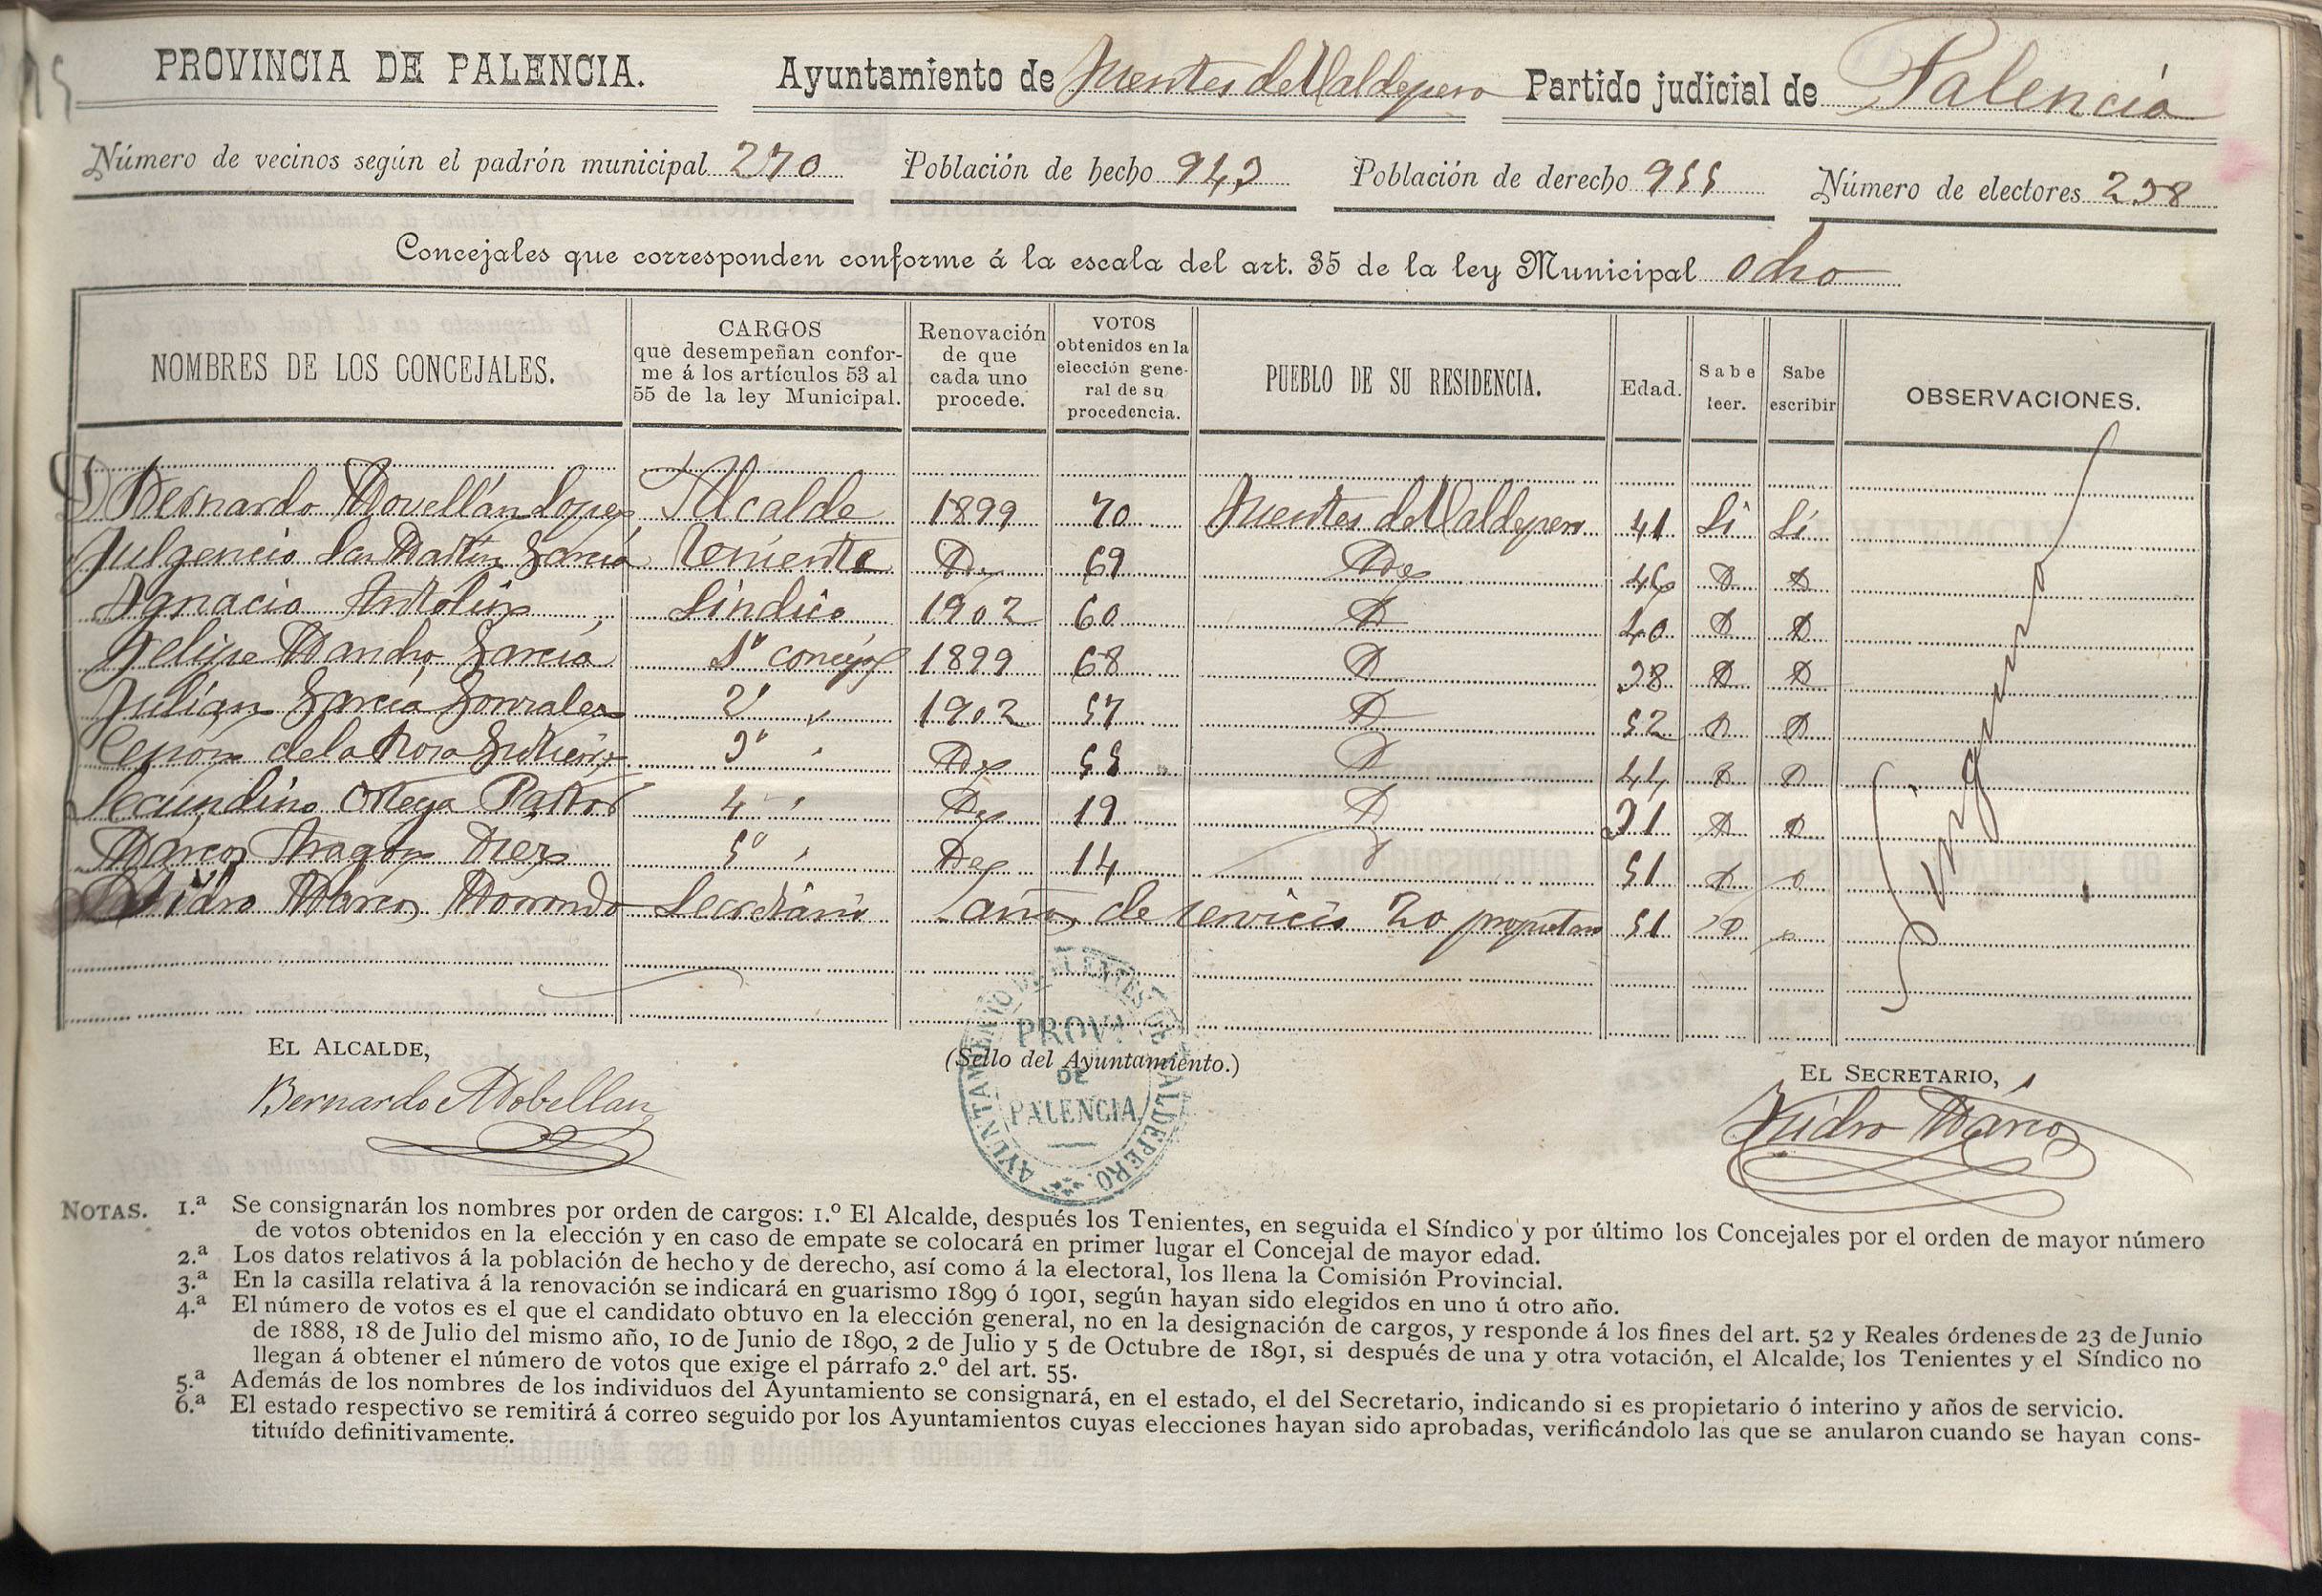 PROVINCIA DE PALENCIA. Ayuntamiento de Fuentes de Valdepero Partido judicial de Palencia
Número de vecinos según el padrón municipal 270 Población de hecho 943 Población de derecho 955 Número de electores 238
Concejales que corresponden conforme á la escala del art. 35 de la ley Municipal ocho
NOMBRES DE LOS CONCEJALES.
CARGOS
que desempeñan confor-
me á los artículos 53 al
55 de la ley Municipal.
Renovación
de que
cada uno
procede.
VOTOS
obtenidos en la
elección gene-
ral de su
procedencia.
PUEBLO DE SU RESIDENCIA.
Edad.
Sabe
leer.
Sabe
escribir
OBSERVACIONES.
D Bernardo Movellán Lopez Alcalde 1899 70 Fuentes de Valdepero 41 Si Si
Fulgencio San Martin García Teniente 69 46
Ignacio Antolín Sindico 1902 60 40
Felipe Mancho García 1º concejal 1899 68 38
Julián García Gonzales 2º 1902 57 52
Cenón de la Rosa Gutierrez 3º 55 44
Secundino Ortega Pastor 4º 19 31
Marcos Aragón Diez 5º 14 51
Isidro Marcos Morrondo Secretario años de servicio 20 propietario 51
Ninguna
EL ALCALDE,
Bernardo Mobellan
(Sello del Ayuntamiento.)
AYUNTAMIENTO DE FUENTES DE VALDEPERO.
PROVA
DE
PALENCIA
EL SECRETARIO,
Isidro Marcos
NOTAS. 1.ª Se consignarán los nombres por orden de cargos: 1.º El Alcalde, después los Tenientes, en seguida el Síndico y por último los Concejales por el orden de mayor número
de votos obtenidos en la elección y en caso de empate se colocará en primer lugar el Concejal de mayor edad.
2.ª Los datos relativos á la población de hecho y de derecho, así como á la electoral, los llena la Comisión Provincial.
3.ª En la casilla relativa á la renovación se indicará en guarismo 1899 ó 1901, según hayan sido elegidos en uno ú otro año.
4.ª El número de votos es el que el candidato obtuvo en la elección general, no en la designación de cargos, y responde á los fines del art. 52 y Reales órdenes de 23 de Junio
de 1888, 18 de Julio del mismo año, 10 de Junio de 1890, 2 de Julio y 5 de Octubre de 1891, si después de una y otra votación, el Alcalde, los Tenientes y el Síndico no
llegan á obtener el número de votos que exige el párrafo 2.º del art. 55.
5.ª Además de los nombres de los individuos del Ayuntamiento se consignará, en el estado, el del Secretario, indicando si es propietario ó interino y años de servicio.
6.ª El estado respectivo se remitirá á correo seguido por los Ayuntamientos cuyas elecciones hayan sido aprobadas, verificándolo las que se anularon cuando se hayan cons-
tituído definitivamente.